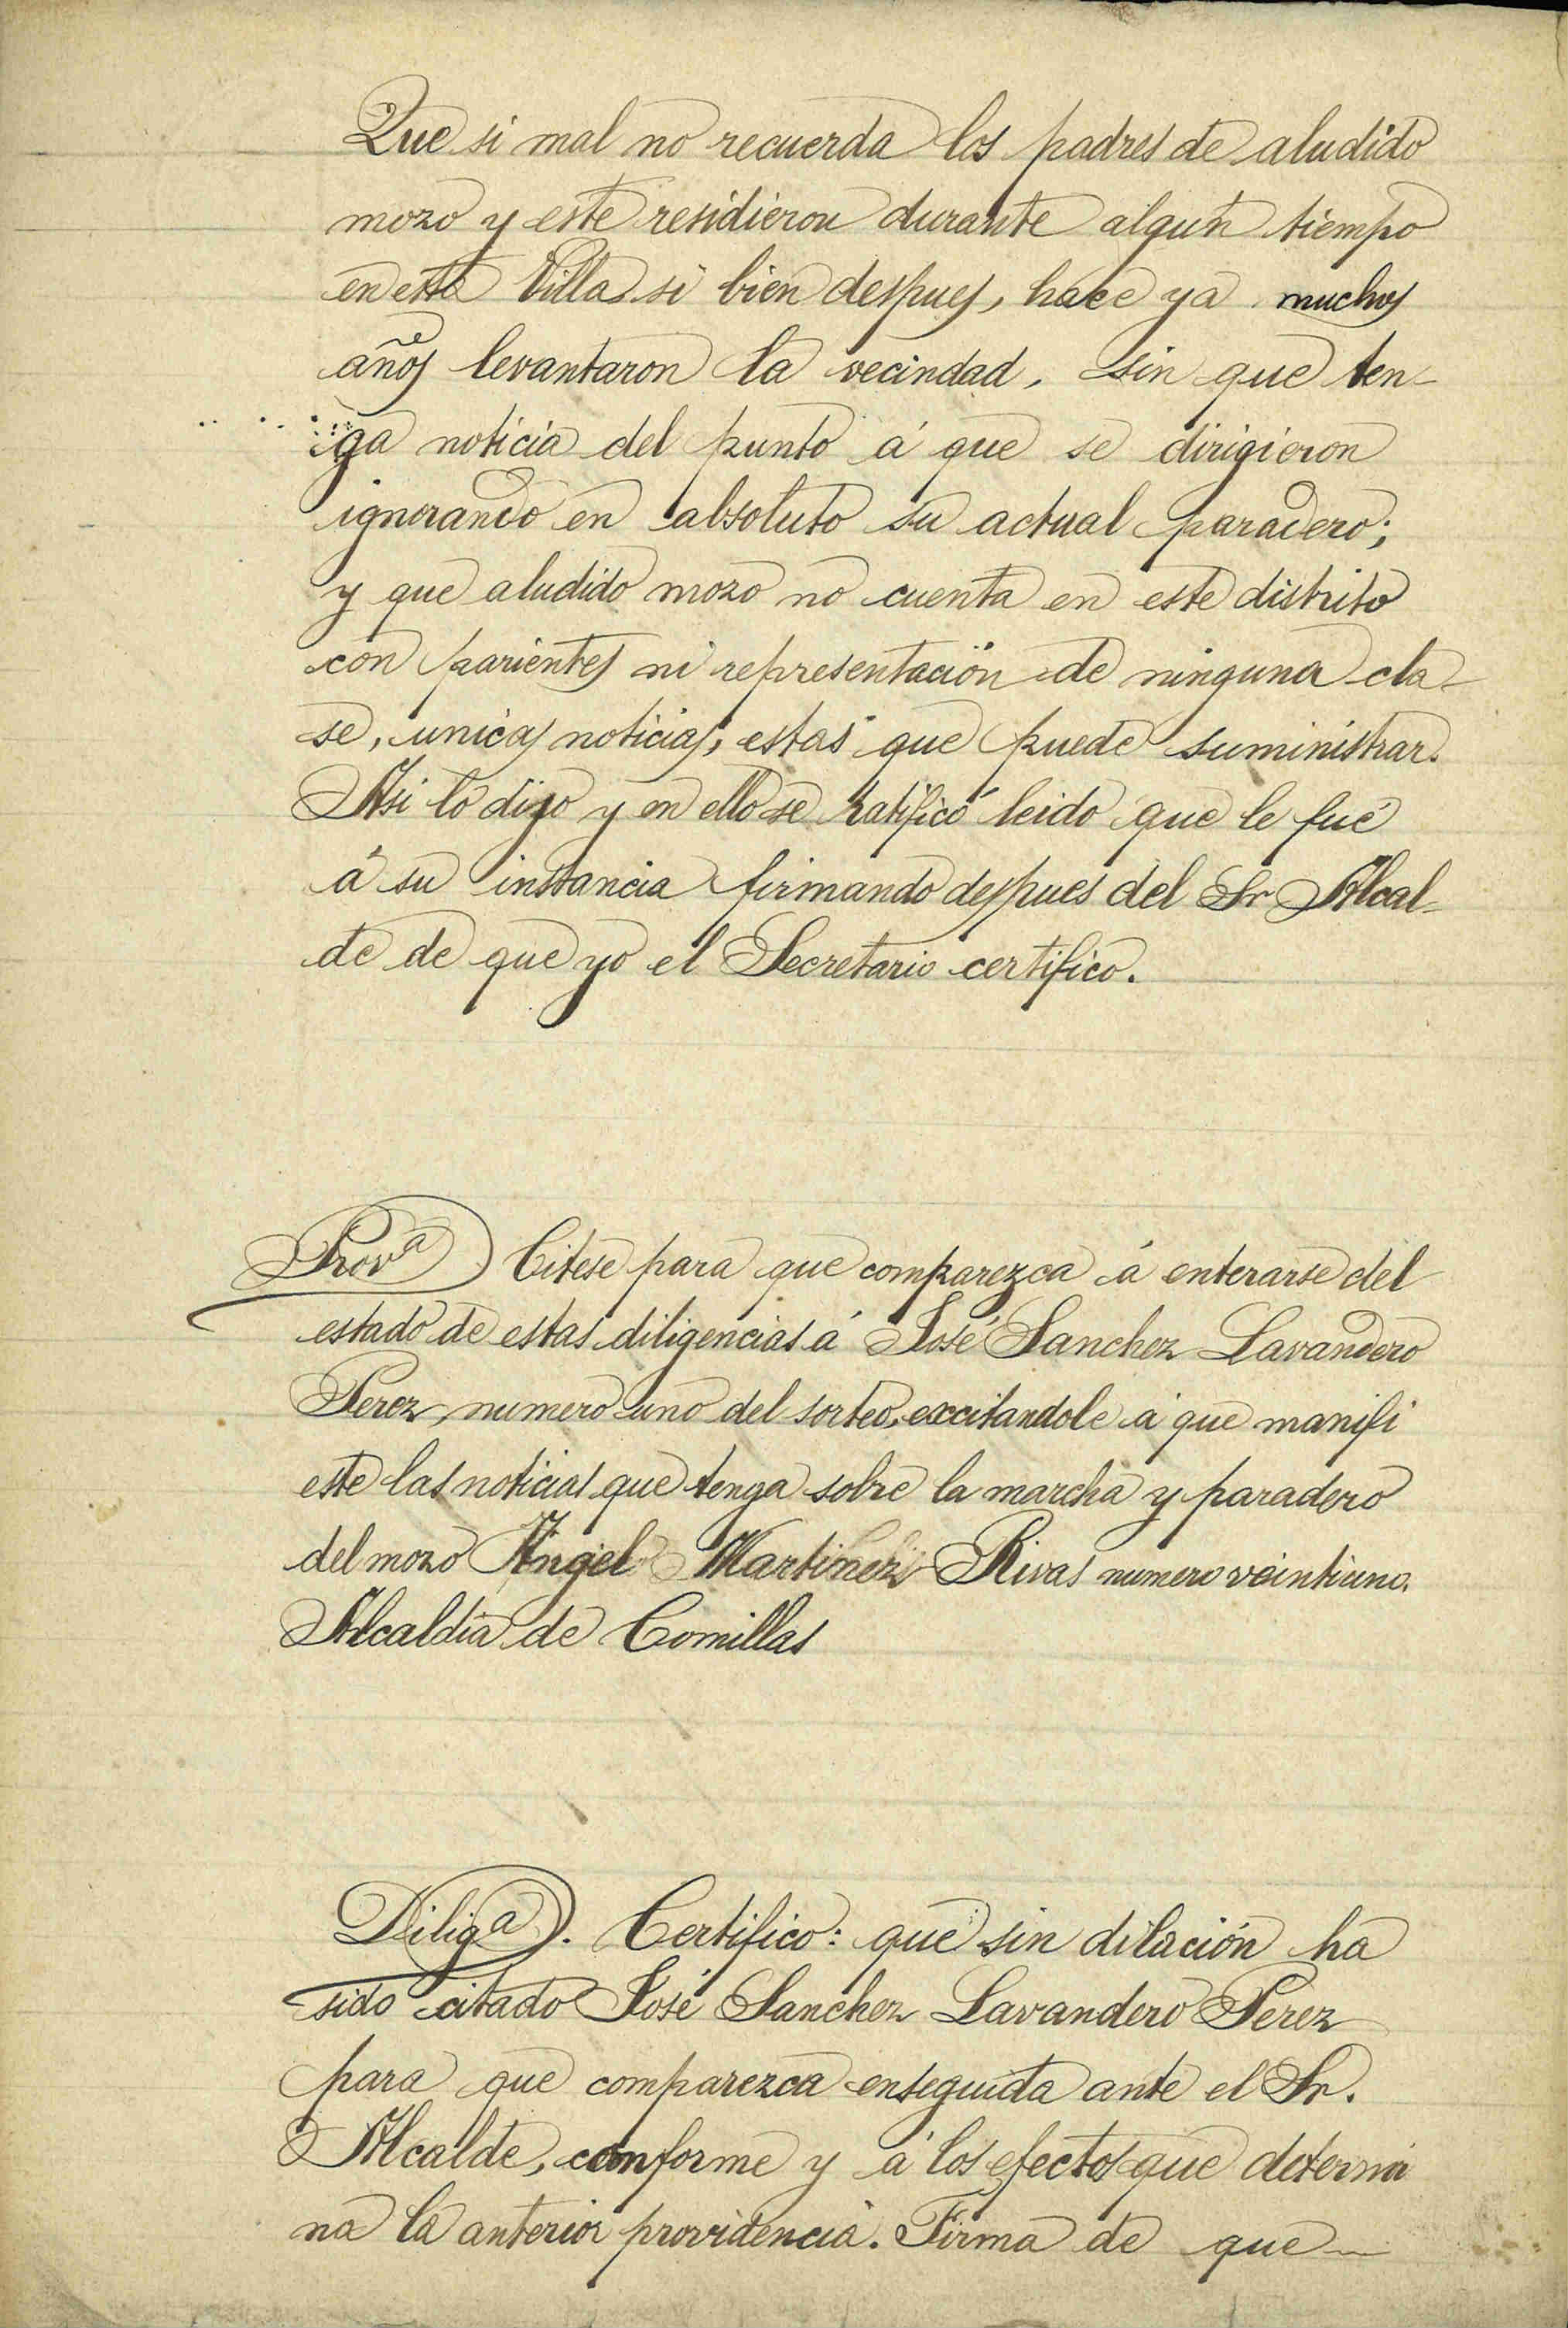 Que si mal no recuerda los padres de aludido
mozo y este residieron durante algun tiempo
en esta Villa si bien despues, hace ya muchos
años levantaron la vecindad, sin que ten-
ga noticia del punto á que se dirigieron
ignorando en absoluto su actual paradero;
y que aludido mozo no cuenta en este distrito
con parientes ni representación de ninguna cla-
se, unicas noticias, estas que puede suministrar.
Asi lo dijo y en ello se ratificó leido que le fué
á su instancia firmando despues del Sr Alcal-
de de que yo el Secretario certifico.
Prov.a Citese para que comparezca á enterarse del
estado de estas diligencias á José Sanchez Lavandero
Perez, numero uno del sorteo, excitandole á que manifi
este las noticias que tenga sobre la marcha y paradero
del mozo Ángel Martinez Rivas numero veintiuno.
Alcaldia de Comillas
Dilig.a. Certifico: que sin dilación ha
sido citado José Sanchez Lavandero Perez
para que comparezca enseguida ante el Sr.
Alcalde, conforme y á los efectos que determi
na la anterior providencia. Firma de que